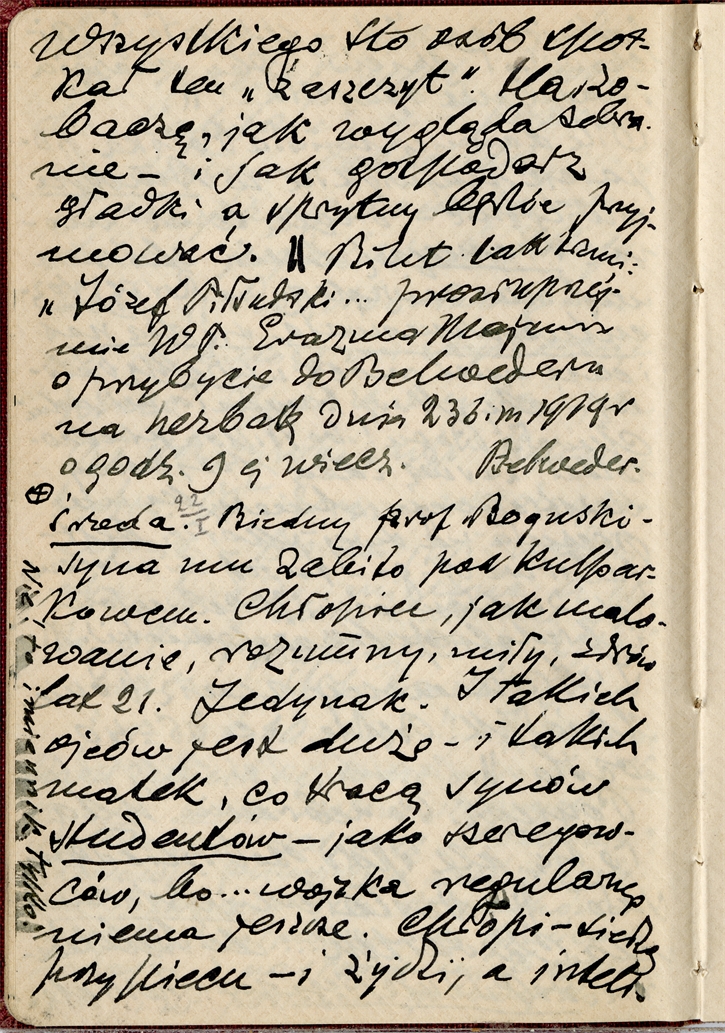 Wszystkiego sto osób spot-
kał ten „zaszczyt". Ha, zo-
baczę, jak wygląda zebra-
nie – i jak gospodarz
gładki a sprytny będzie przyj-
mować. || Bilet tak brzmi:
„Józef Piłsudski... prosi uprzej-
mie WP. Erazma Majewsk
o przybycie do Belwederu
na herbatę dnia 23 b.m 1919 r
o godz. 9 ej wiecz. Belweder.
⊕ Środa. 22/I Biedny prof Boguski -
syna mu zabito pod Kulpar-
kowem. Chłopiec, jak malo-
wanie, rozumny, miły, zdrów
lat 21. Jedynak. I takich
ojców jest dużo – i takich
matek, co tracą synów
studentów – jako szeregow-
ców, bo... wojska regularnego
niema jeszcze. Chłopi – siedzą
przy piecu – i żydzi, a inteli-
Nie, to imiennik tylko!